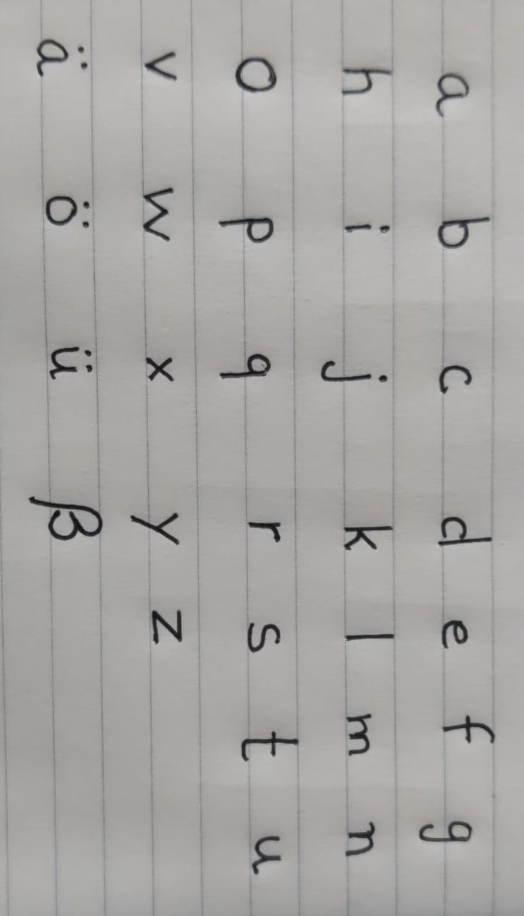 a b c d e f g
h i j k l m n
o p q r s t u
v w x y z
ä ö ü β